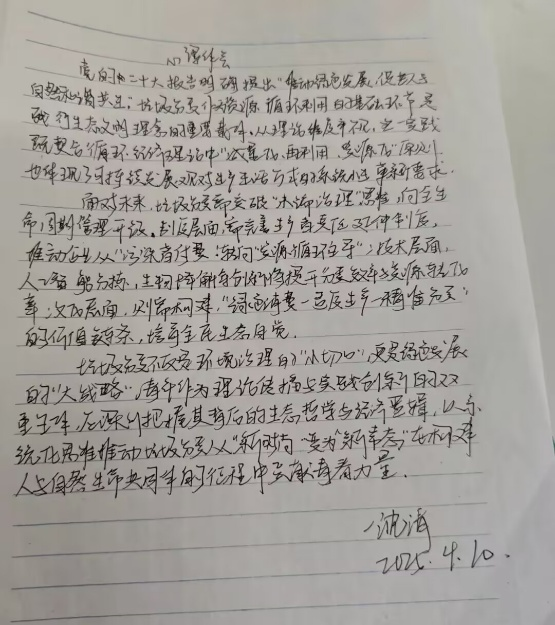 心得体会
党的二十大报告明确提出“推动绿色发展,促进人与
自然和谐共生”垃圾分类作为资源循环利用的基础环节,是
践行生态文明理念的重要载体,从理论维度来看,这一实践
既契合循环经济理论中“减量化、再利用、资源化”原则,
也体现了可持续发展观对生产生活方式的系统性革新要求。
面对未来,垃圾分类需突破“末端治理”思维,向全生
命周期管理升级,制度层面,需完善生产者责任延伸制度,
推动企业从“污染者付费”转向“资源循环主导”;技术层面,
人工智能分拣、生物降解等创新将提升分类效率与资源转化
率;文化层面,则需构建“绿色消费一适度生产一精准分类”
的价值链条,培育全民生态自觉。
垃圾分类不仅是环境治理的“小切口”,更是绿色发展
的“大战略”,青年作为理论传播与实践创新的双
重主体,应深刻把握其背后的生态哲学与经济逻辑,以系
统化思维推动垃圾分类从“新时尚”变为“新常态”在构建
人与自然生命共同体的征程中贡献青春力量.
沈涛
2025.4.10.